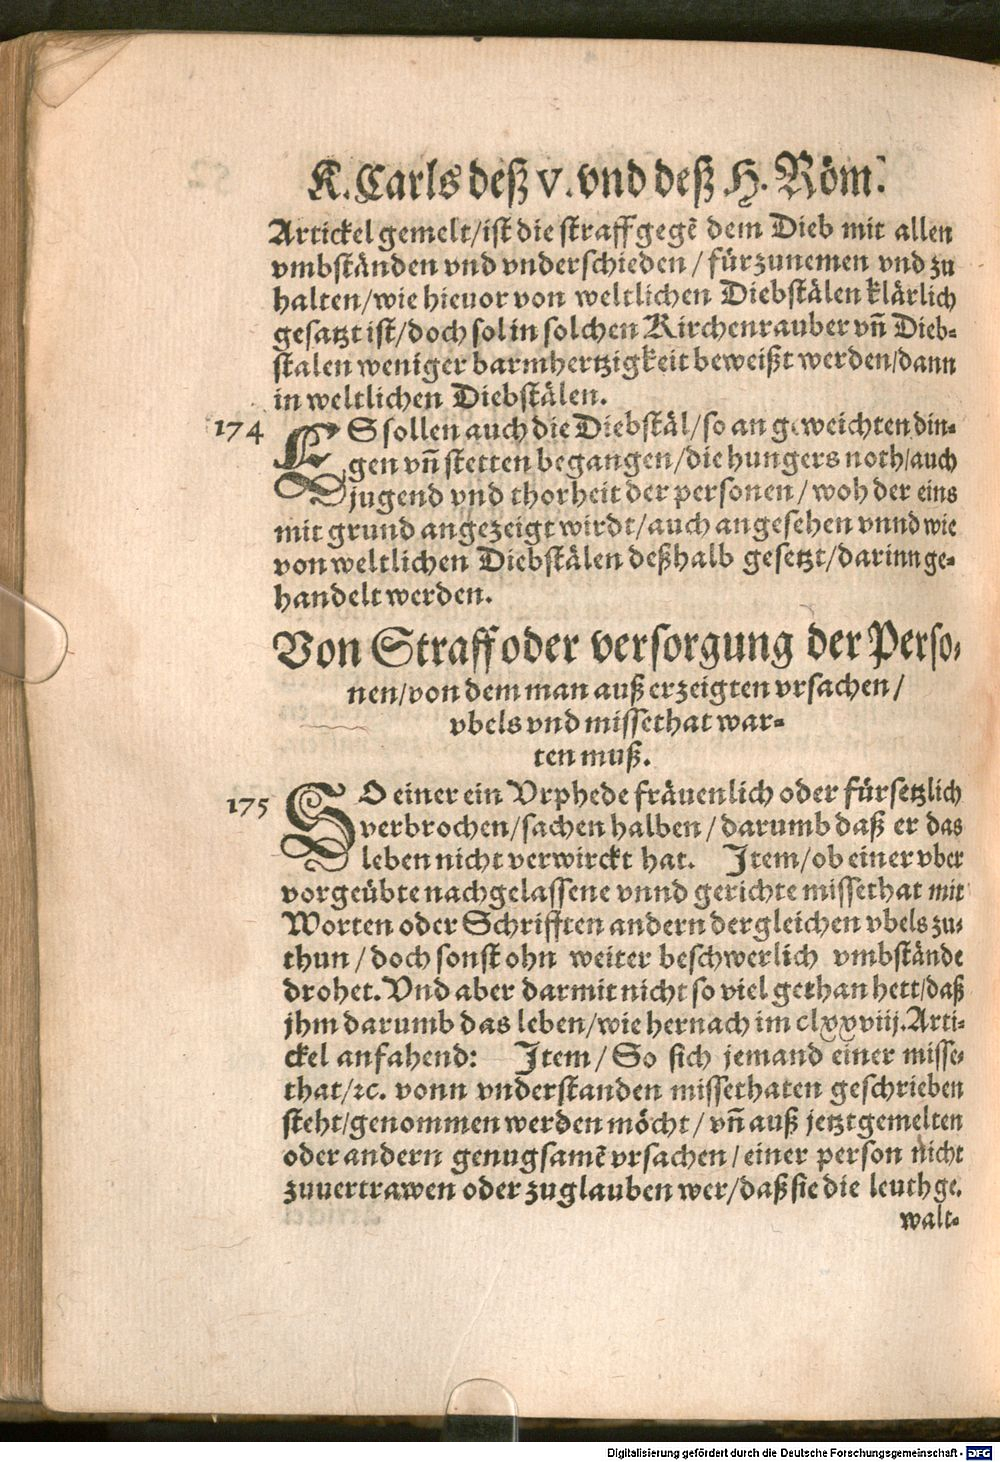 K. Carls deß V. vnd deß H. Röm.
Artickel gemelt/ist die straff gegē dem Dieb mit allen
vmbständen vnd vnderschieden/fürzunemen vnd zu
halten/wie hieuor von weltlichen Diebstälen klärlich
gesatzt ist/doch sol in solchen Kirchenrauber vñ Dieb-
stalen weniger barmhertzigkeit beweißt werden/dann
in weltlichen Diebstälen.
174 ES sollen auch die Diebstäl/so an geweichten din-
gen vñ stetten begangen/die hungers noth/auch
jugend vnd thorheit der personen/woh der eins
mit grund angezeigt wirdt/auch angesehen vnnd wie
von weltlichen Diebstälen deßhalb gesetzt/darinn ge-
handelt werden.
Von Straff oder versorgung der Perso-
nen/von dem man auß erzeigten vrsachen/
vbels vnd missethat war-
ten muß.
175 SO einer ein Vrphede fräuenlich oder fürsetzlich
verbrochen/sachen halben/darumb daß er das
leben nicht verwirckt hat. Item/ob einer vber
vorgeübte nachgelassene vnnd gerichte missethat mit
Worten oder Schrifften andern dergleichen vbels zu-
thun/doch sonst ohn weiter beschwerlich vmbstände
drohet. Vnd aber darmit nicht so viel gethan hett/daß
jhm darumb das leben/wie hernach im clxxviij. Arti-
ckel anfahend: Item/So sich jemand einer misse-
that/ꝛc. vonn vnderstanden missethaten geschrieben
steht/genommen werden möcht/vñ auß jetztgemelten
oder andern genugsamē vrsachen/einer person nicht
zuuertrawen oder zuglauben wer/daß sie die leuth ge-
walt-
Digitalisierung gefördert durch die Deutsche Forschungsgemeinschaft - DFG